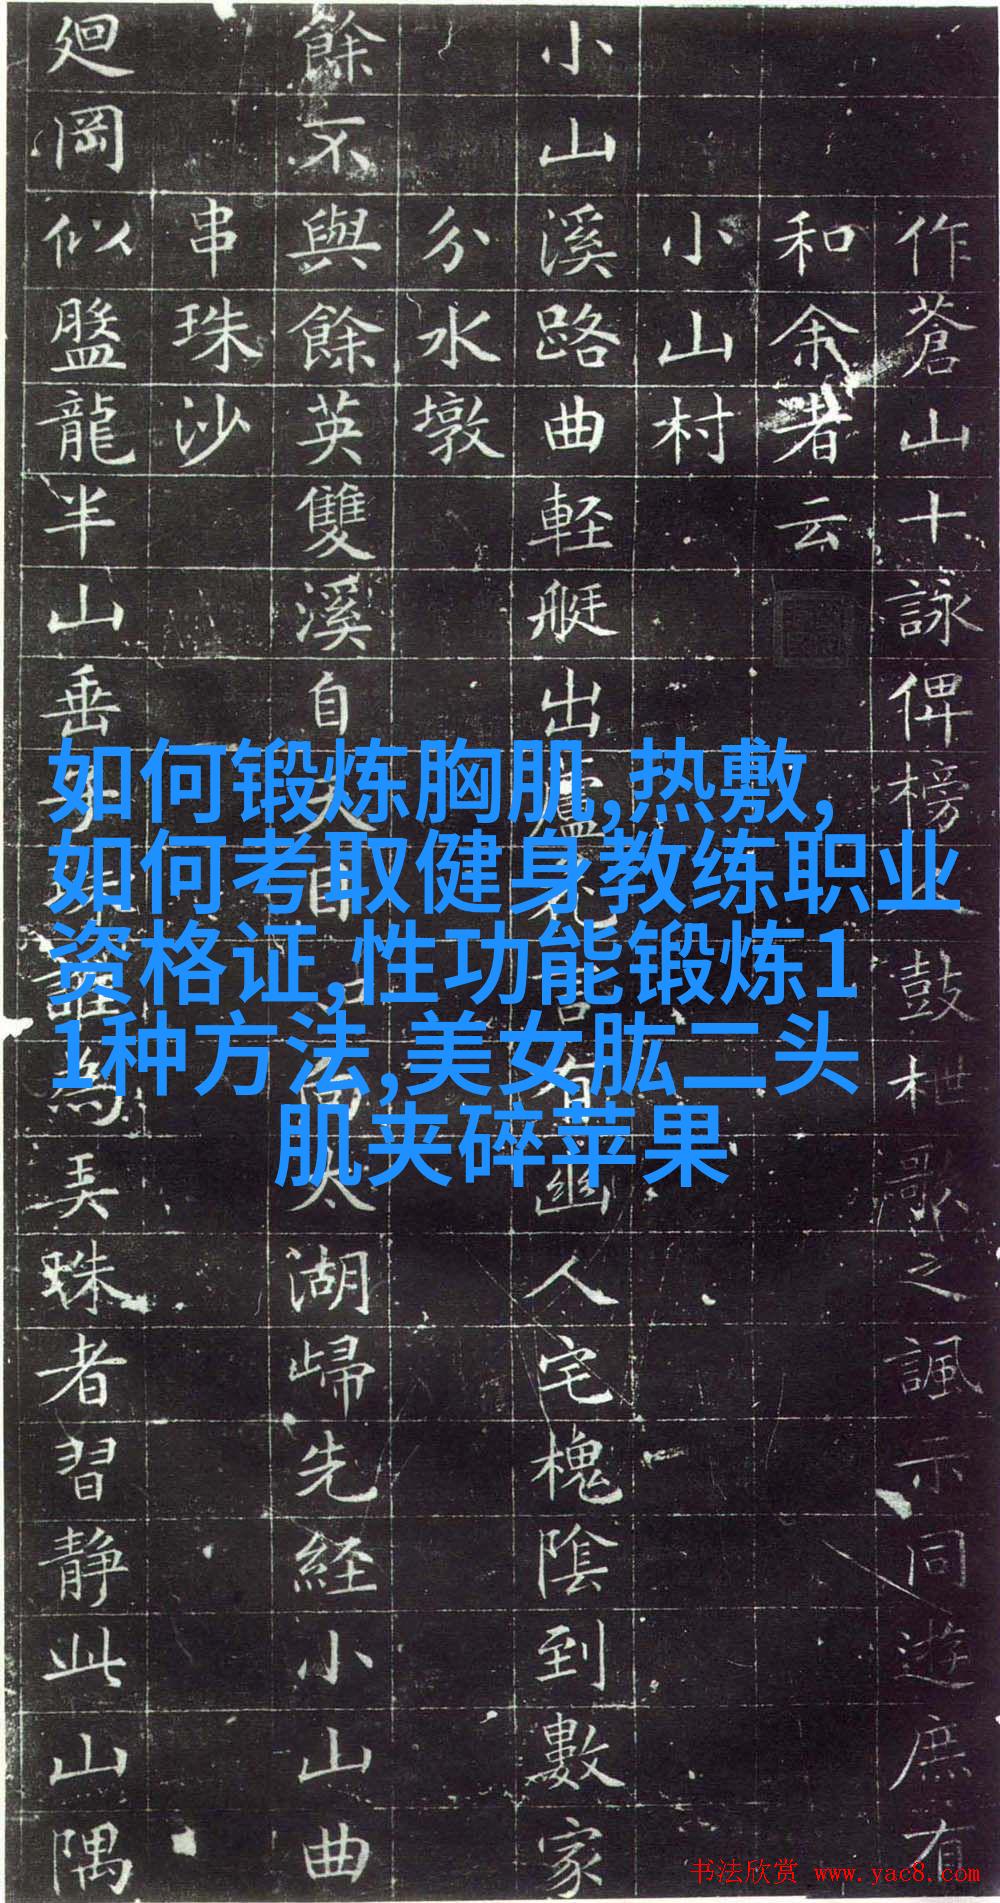 作蒼山十詠俾榜人鼓枻歌之諷示同遊庶有
和余者云
小山村
小山溪路曲軽艇出蘆花有幽人宅槐陰到數家
分水墩
餘不與餘英雙溪自天目山向太湖歸先経小山曲
串珠沙
廻岡似盤龍半山垂珠誰為弄珠者習静此山隅
如何锻炼胸肌,热敷,
如何考取健身教练职业
资格证,性功能锻炼1
1种方法,美女肱二头
肌夹碎苹果
书法欣赏 www.yac8.com